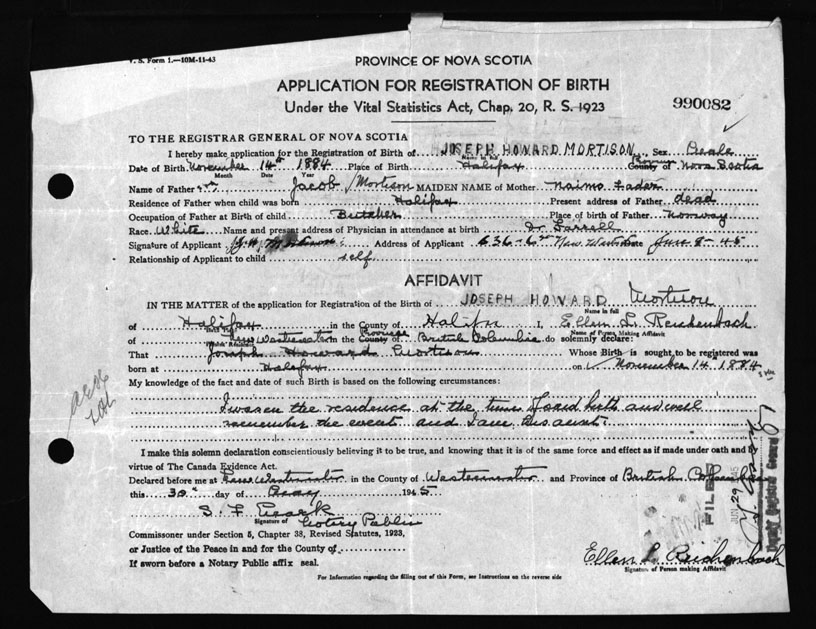 V. S. Form 1.—10M-11-43
PROVINCE OF NOVA SCOTIA
APPLICATION FOR REGISTRATION OF BIRTH
Under the Vital Statistics Act, Chap. 20, R. S. 1923
990082
TO THE REGISTRAR GENERAL OF NOVA SCOTIA
I hereby make application for the Registration of Birth of JOSEPH HOWARD MORTISON Sex
Name in full
Date of Birth November 14th 1884 Place of Birth Halifax County of Nova Scotia
Month Date Year
Name of Father Jacob Mortison MAIDEN NAME of Mother Naima Fader
Residence of Father when child was born Halifax Present address of Father dead
Occupation of Father at Birth of child Butcher Place of birth of Father Norway
Race White Name and present address of Physician in attendance at birth Dr Farrell
Signature of Applicant Address of Applicant 636-6th New West Date June 8-45
Relationship of Applicant to child self
AFFIDAVIT
IN THE MATTER of the application for Registration of the Birth of JOSEPH HOWARD Mortison
Name in full
of Halifax in the County of Halifax I, Ellen L. Reichenbach
Name of Person Making Affidavit
of New Westminster in the County of Province British Columbia do solemnly declare:
That Joseph Howard Mortison Whose Birth is sought to be registered was
born at Halifax on November 14 1884
My knowledge of the fact and date of such Birth is based on the following circumstances:
I was in the residence at the time of said birth and well
remember the event and I am his aunt.
I make this solemn declaration conscientiously believing it to be true, and knowing that it is of the same force and effect as if made under oath and
virtue of The Canada Evidence Act.
Declared before me at New Westminster in the County of Westminster and Province of British Columbia
this 30th day of May 1945
S. F.
Signature of Notary Public
Commissioner under Section 5, Chapter 38, Revised Statutes, 1923,
or Justice of the Peace in and for the County of
If sworn before a Notary Public affix seal.
Ellen L. Reichenbach
Signature of Person making Affidavit
For Information regarding the filling out of this Form, see Instructions on the reverse side
FILED
JUN 29
Deputy Registrar General